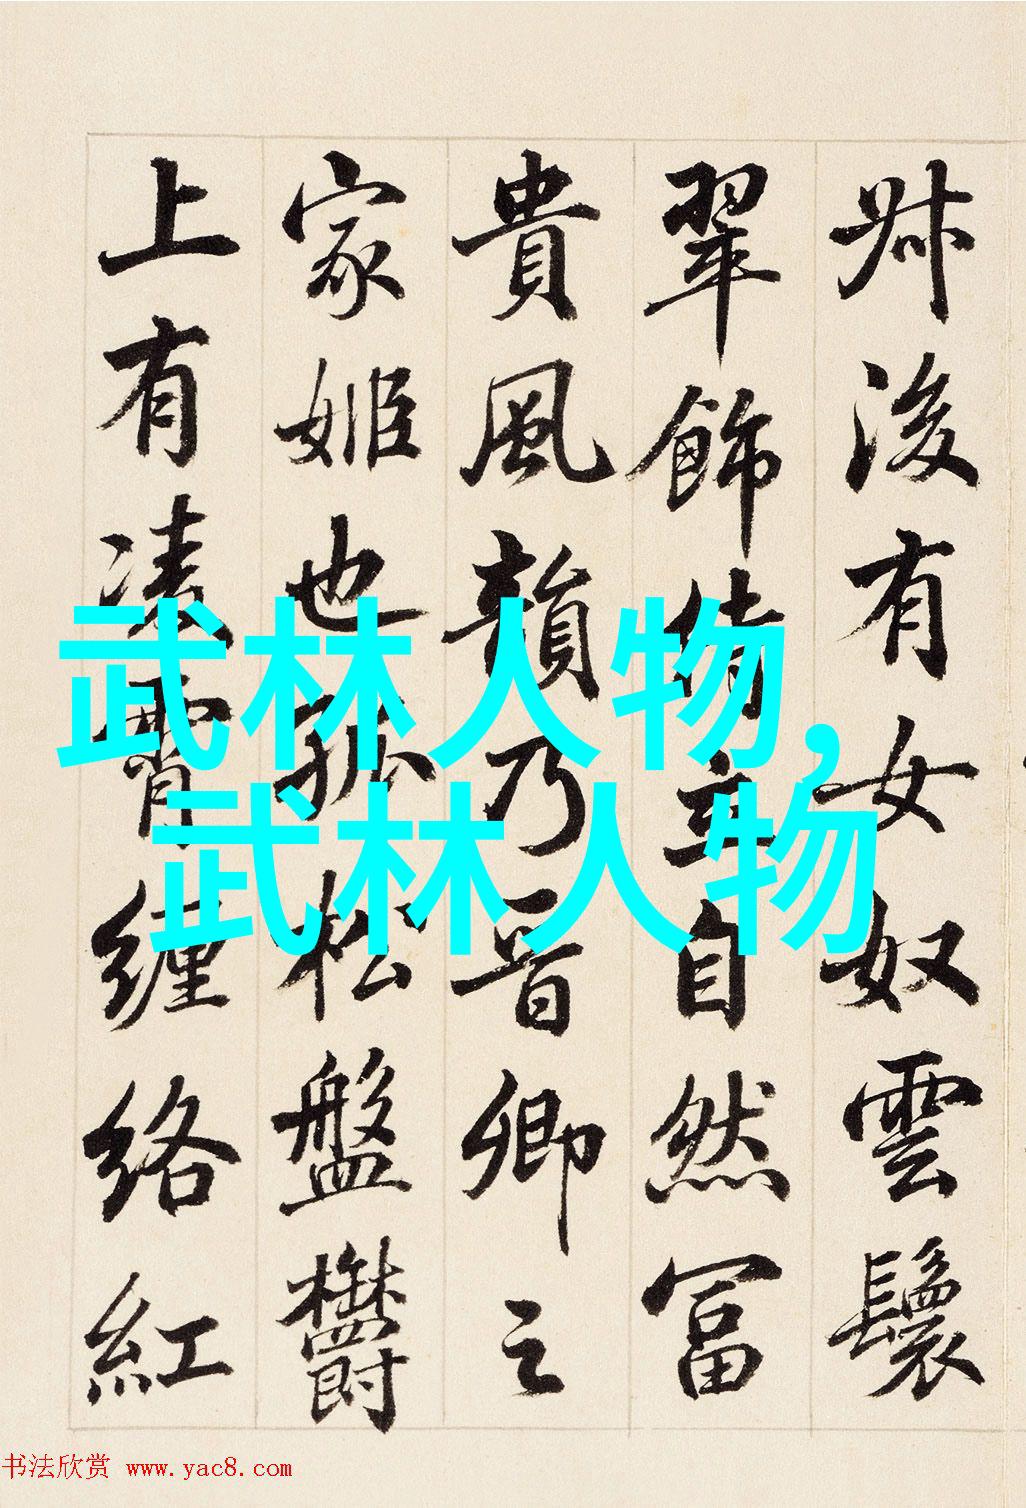 尗後有女奴雲鬟
翠飾倚立自然富
貴風韻乃晉卿之
家姬也孤松盤欝
上有凌霄纏络紅
武林人物,
武林人物
书法欣赏 www.yac8.com